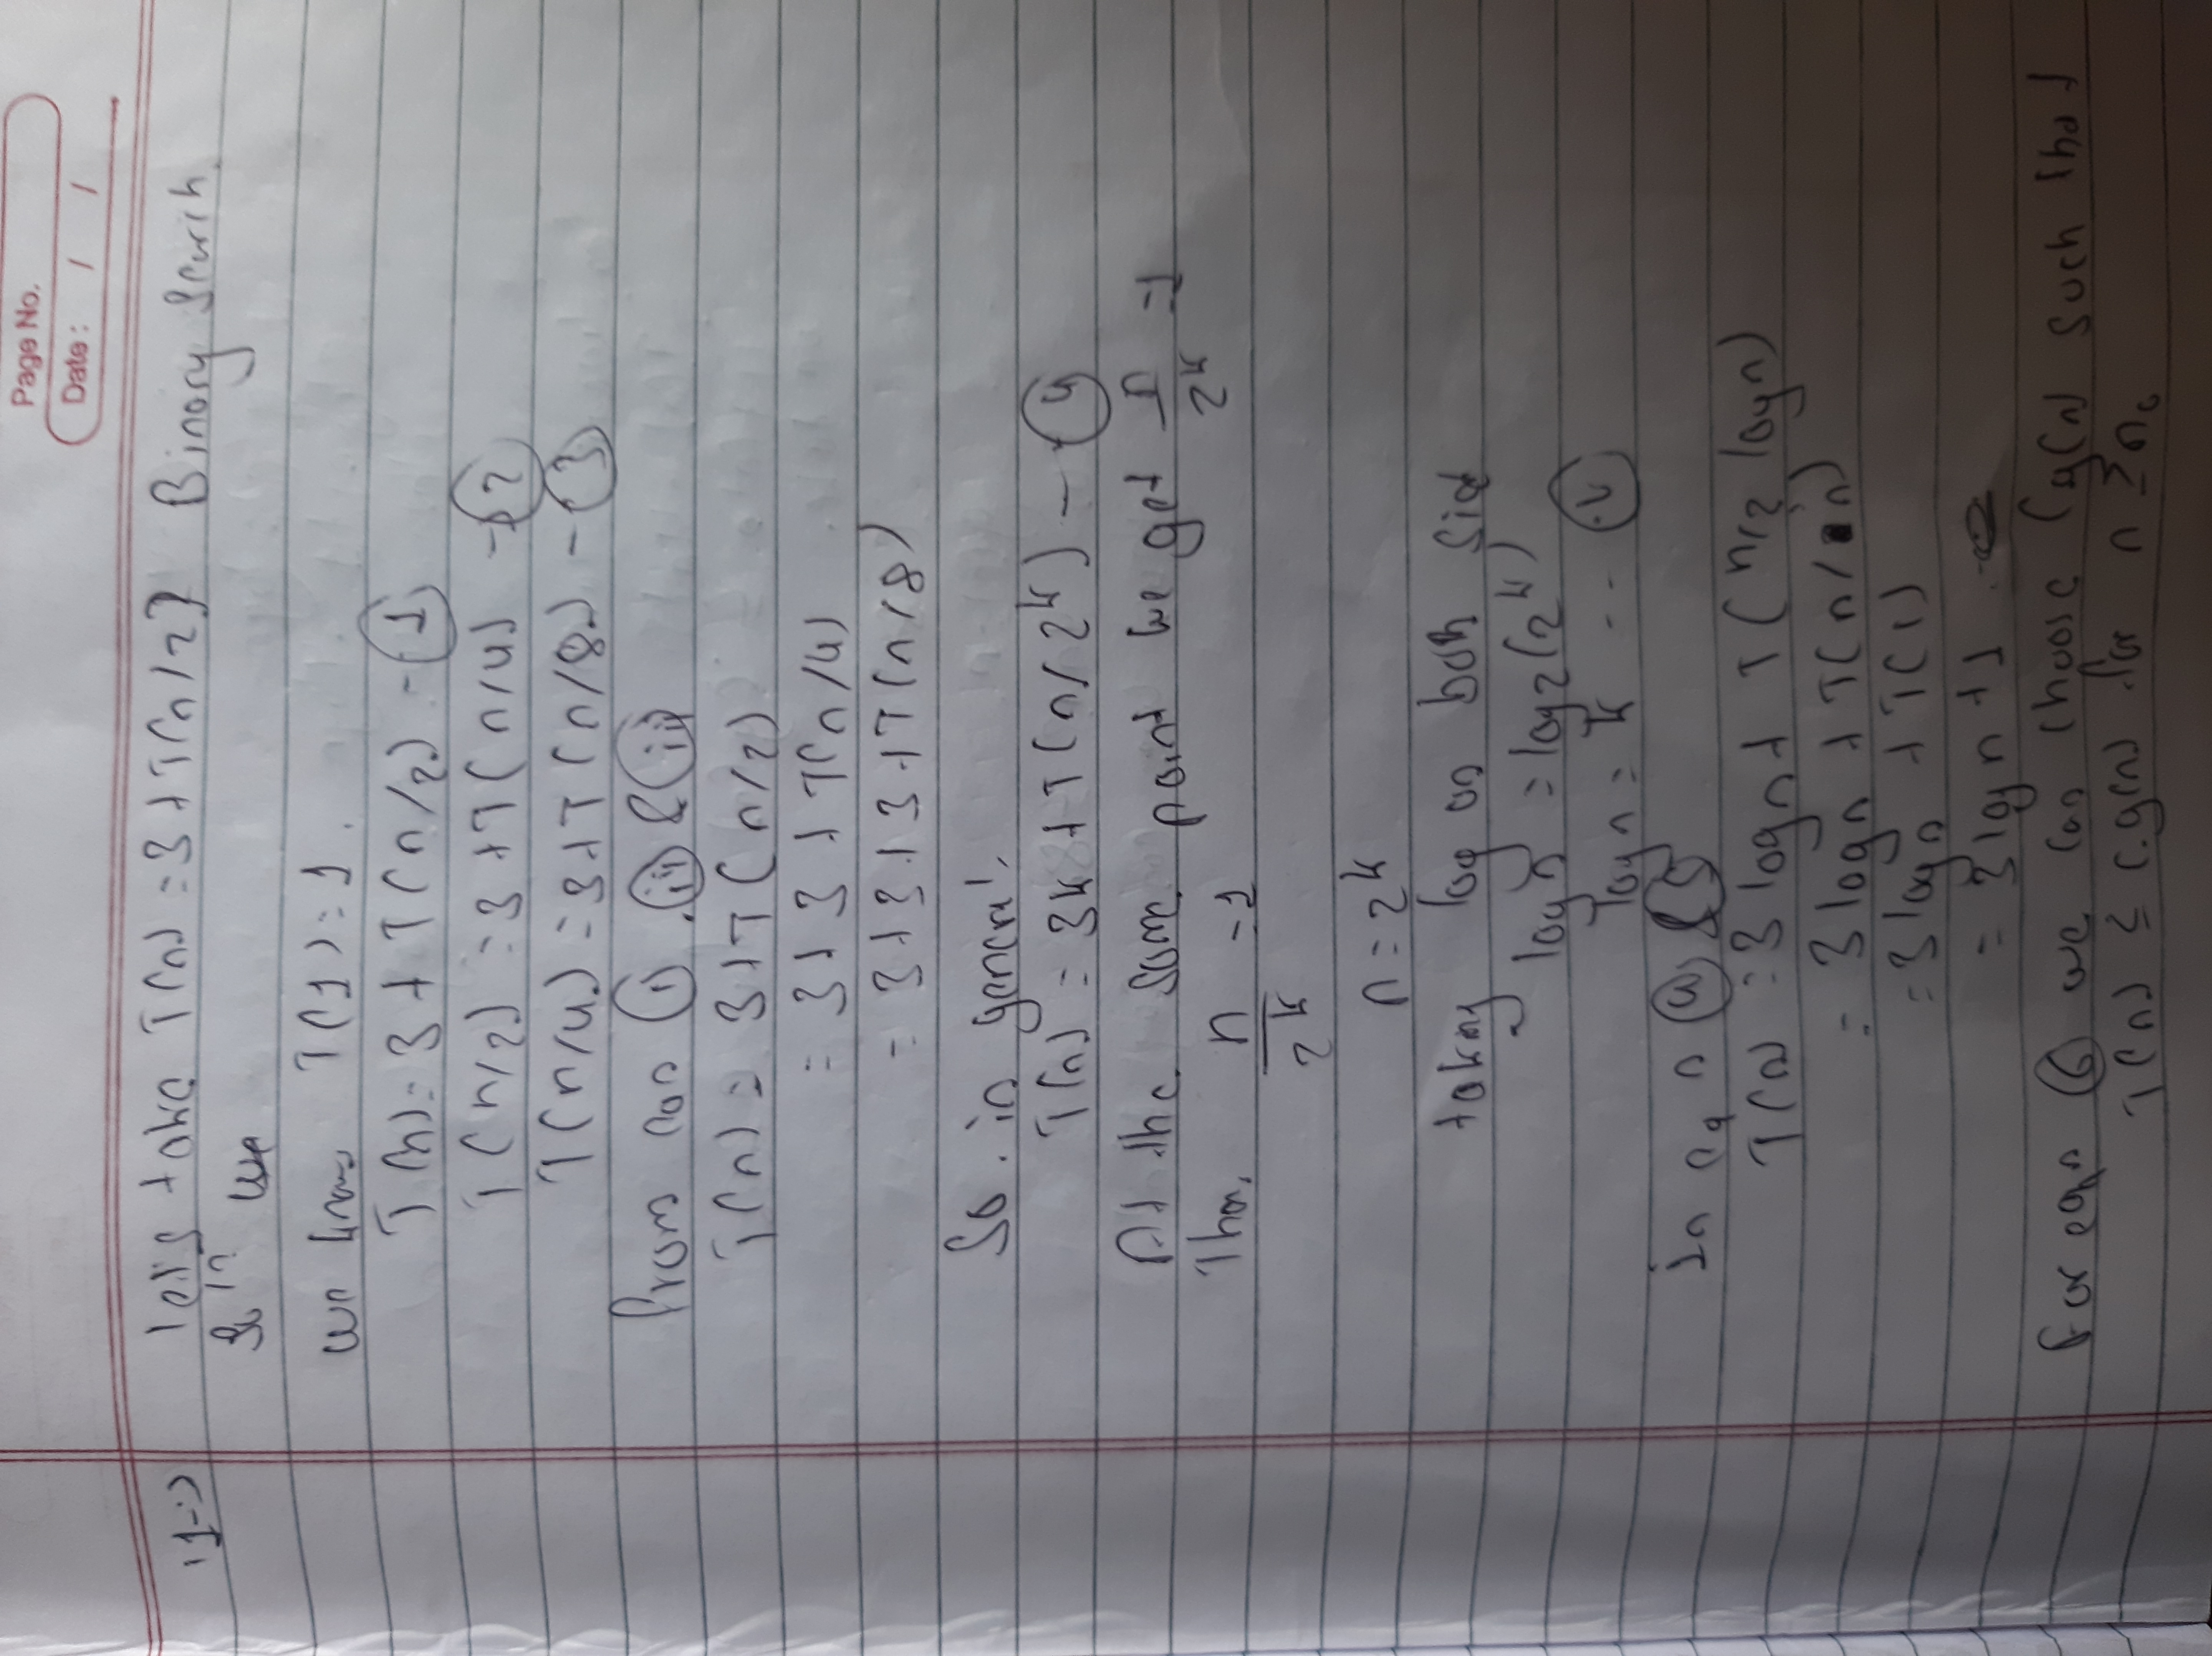 Page No.
Date : / /
11-:) let's take T(n) = 3 + T(n/2) Binary Search.
Sol? we
we know T(1) = 1.
T(n) = 3 + T(n/2) - ①
T(n/2) = 3 + T(n/4) - ②
T(n/4) = 3 + T(n/8) - ③
From eqn ⓘ, ⓘⓘ & ⓘⓘⓘ
T(n) = 3 + T(n/2)
= 3 + 3 + T(n/4)
= 3 + 3 + 3 + T(n/8)
So. in general,
T(n) = 3k + T(n/2^k) - ④
At the some point we get n/2^k = 1
Then, n/2^k = 1
n = 2^k
taking log on both side
log n = log2(2^k)
log n = k -- ⓥ
In eqn ④ & ⑤
T(n) = 3 log n + T(n/2 log n)
= 3 log n + T(n/n)
= 3 log n + T(1)
= 3 log n + 1
For eqn ⑥ we can choose Cg(n) such that
T(n) ≤ c.g(n) for n ≥ n₀